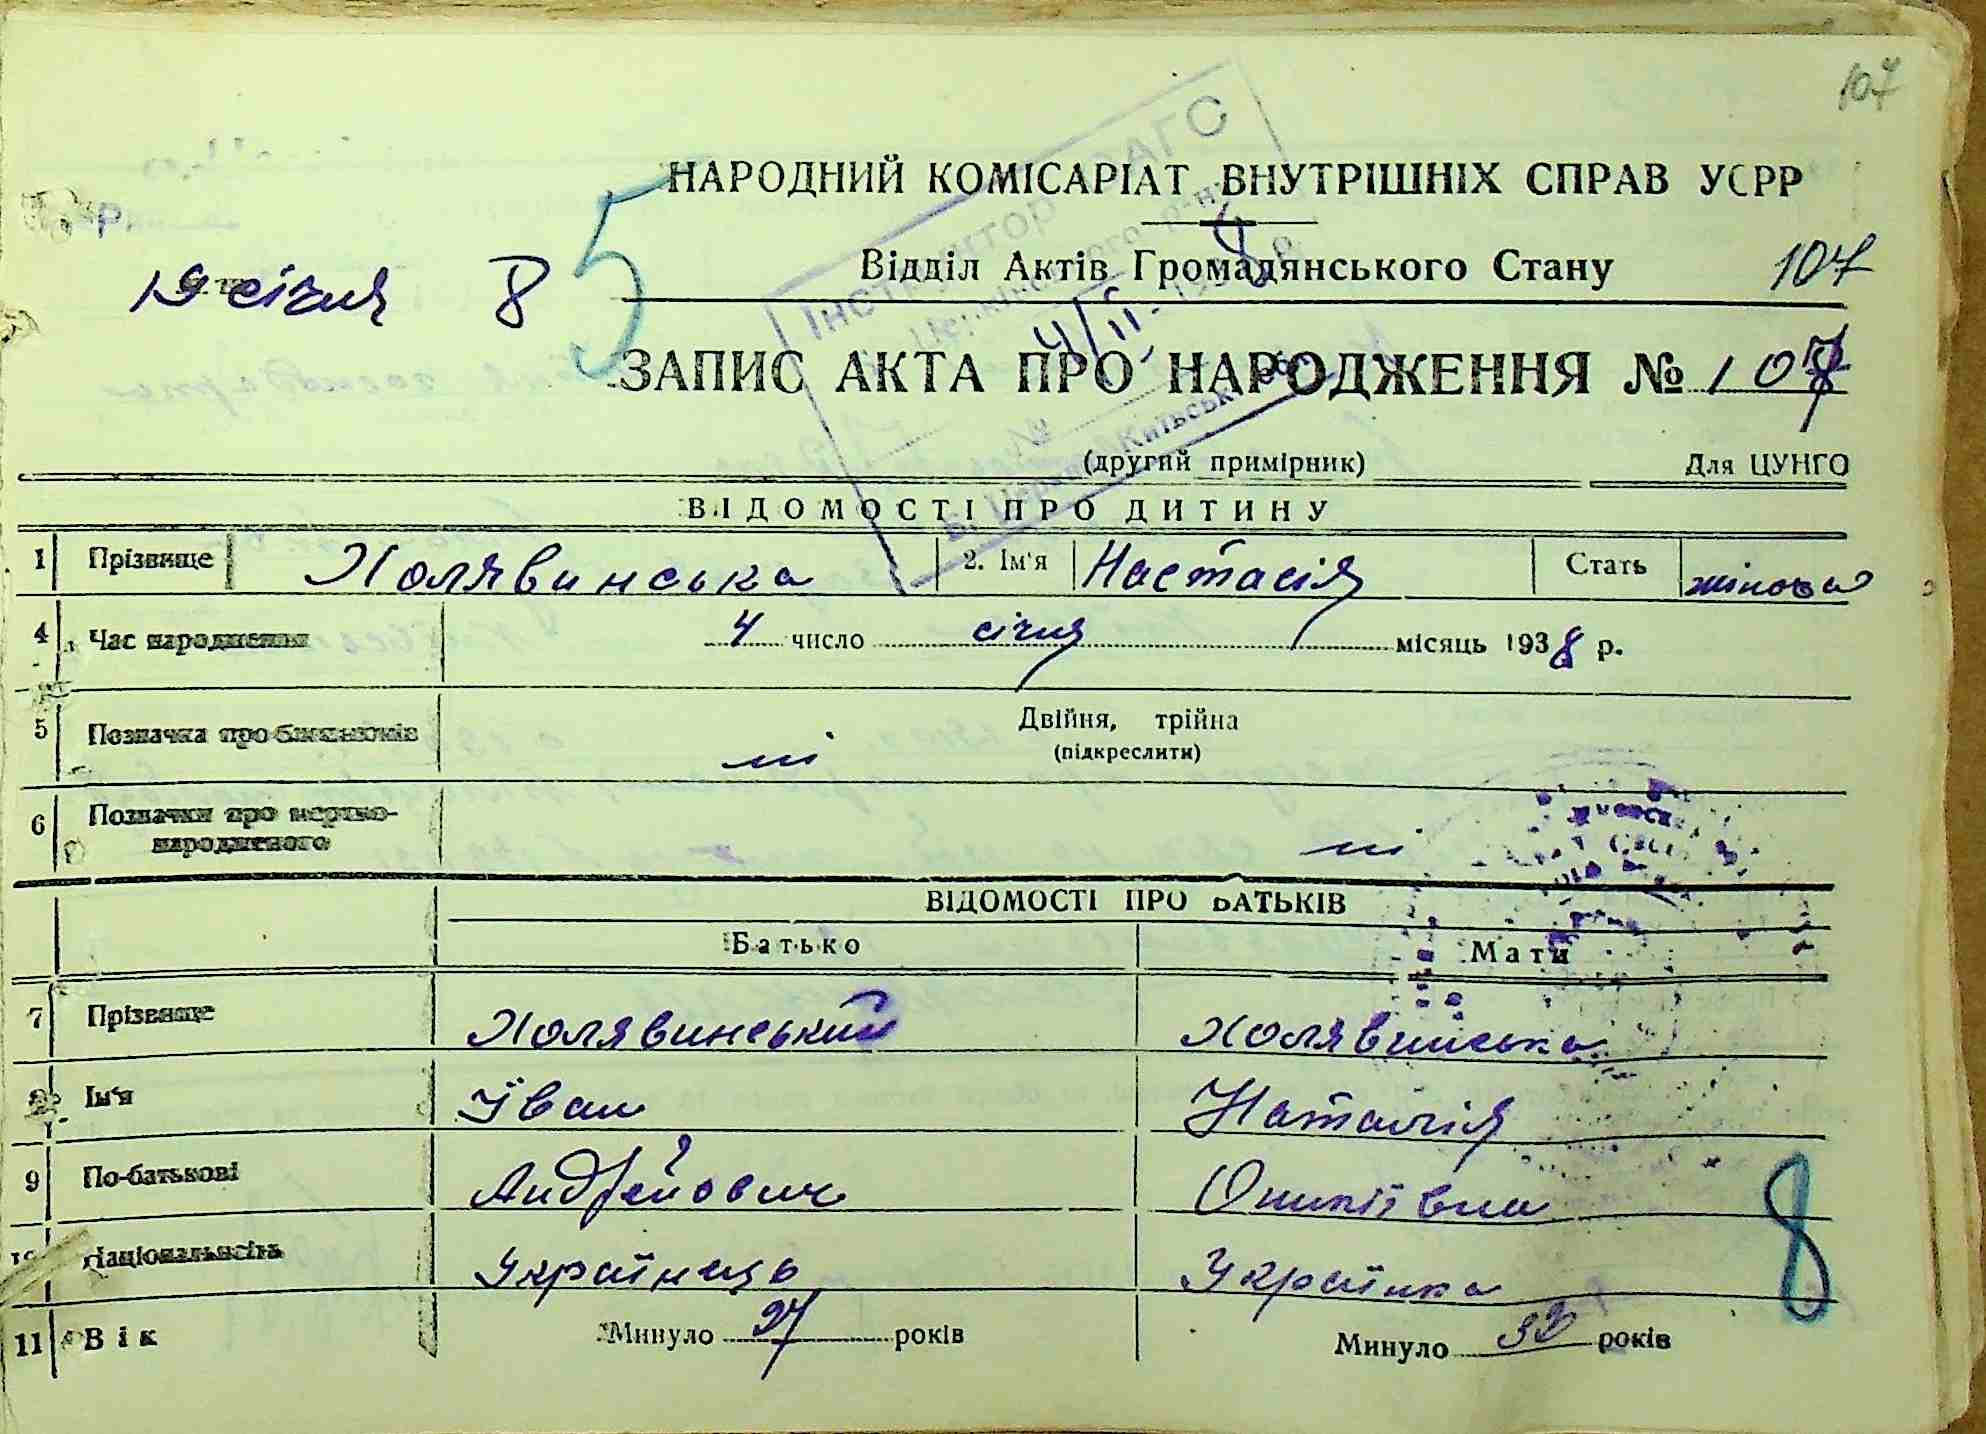 107
НАРОДНИЙ КОМІСАРІАТ ВНУТРІШНІХ СПРАВ УСРР
19 січня 8
5
Відділ Актів Громадянського Стану
107
ЗАПИС АКТА ПРО НАРОДЖЕННЯ № 107
(другий примірник)
Для ЦУНГО
ВІДОМОСТІ ПРО ДИТИНУ
1 Прізвище Холявинська 2. Ім'я Настасія Стать жіноча
4 Час народження 4 число січня місяць 1938 р.
5 Позначка про близнюків ні Двійня, трійна
(підкреслити)
6 Позначки про мертво-
народженого ні
ВІДОМОСТІ ПРО БАТЬКІВ
Батько Мати
7 Прізвище Холявинський Холявинська
8 Ім'я Іван Наталія
9 По-батькові Андрейович
10 Національність Українець Українка
8
11 Вік Минуло 37 років Минуло років
Інструктор ЗАГС
Церківського р-ну
4/II 1938 р.
№
Б. Церква Київськ. обл.